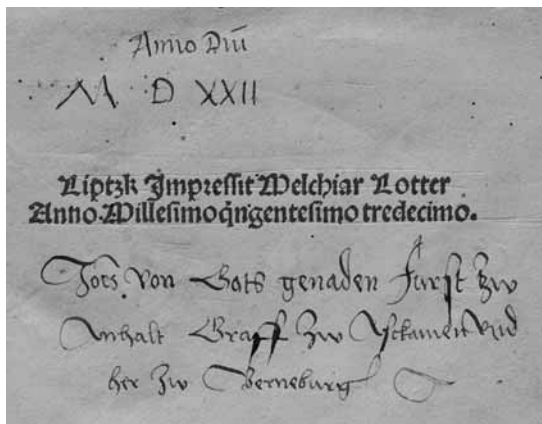 Anno Dm̄
M D XXII
Liptzk Impressit Melchiar Lotter
Anno. Millesimo q̄ngentesimo tredecimo.
von Gots genaden Furst zw
Anhalt Graff zw Asckanien vnd
her zw Berneburg